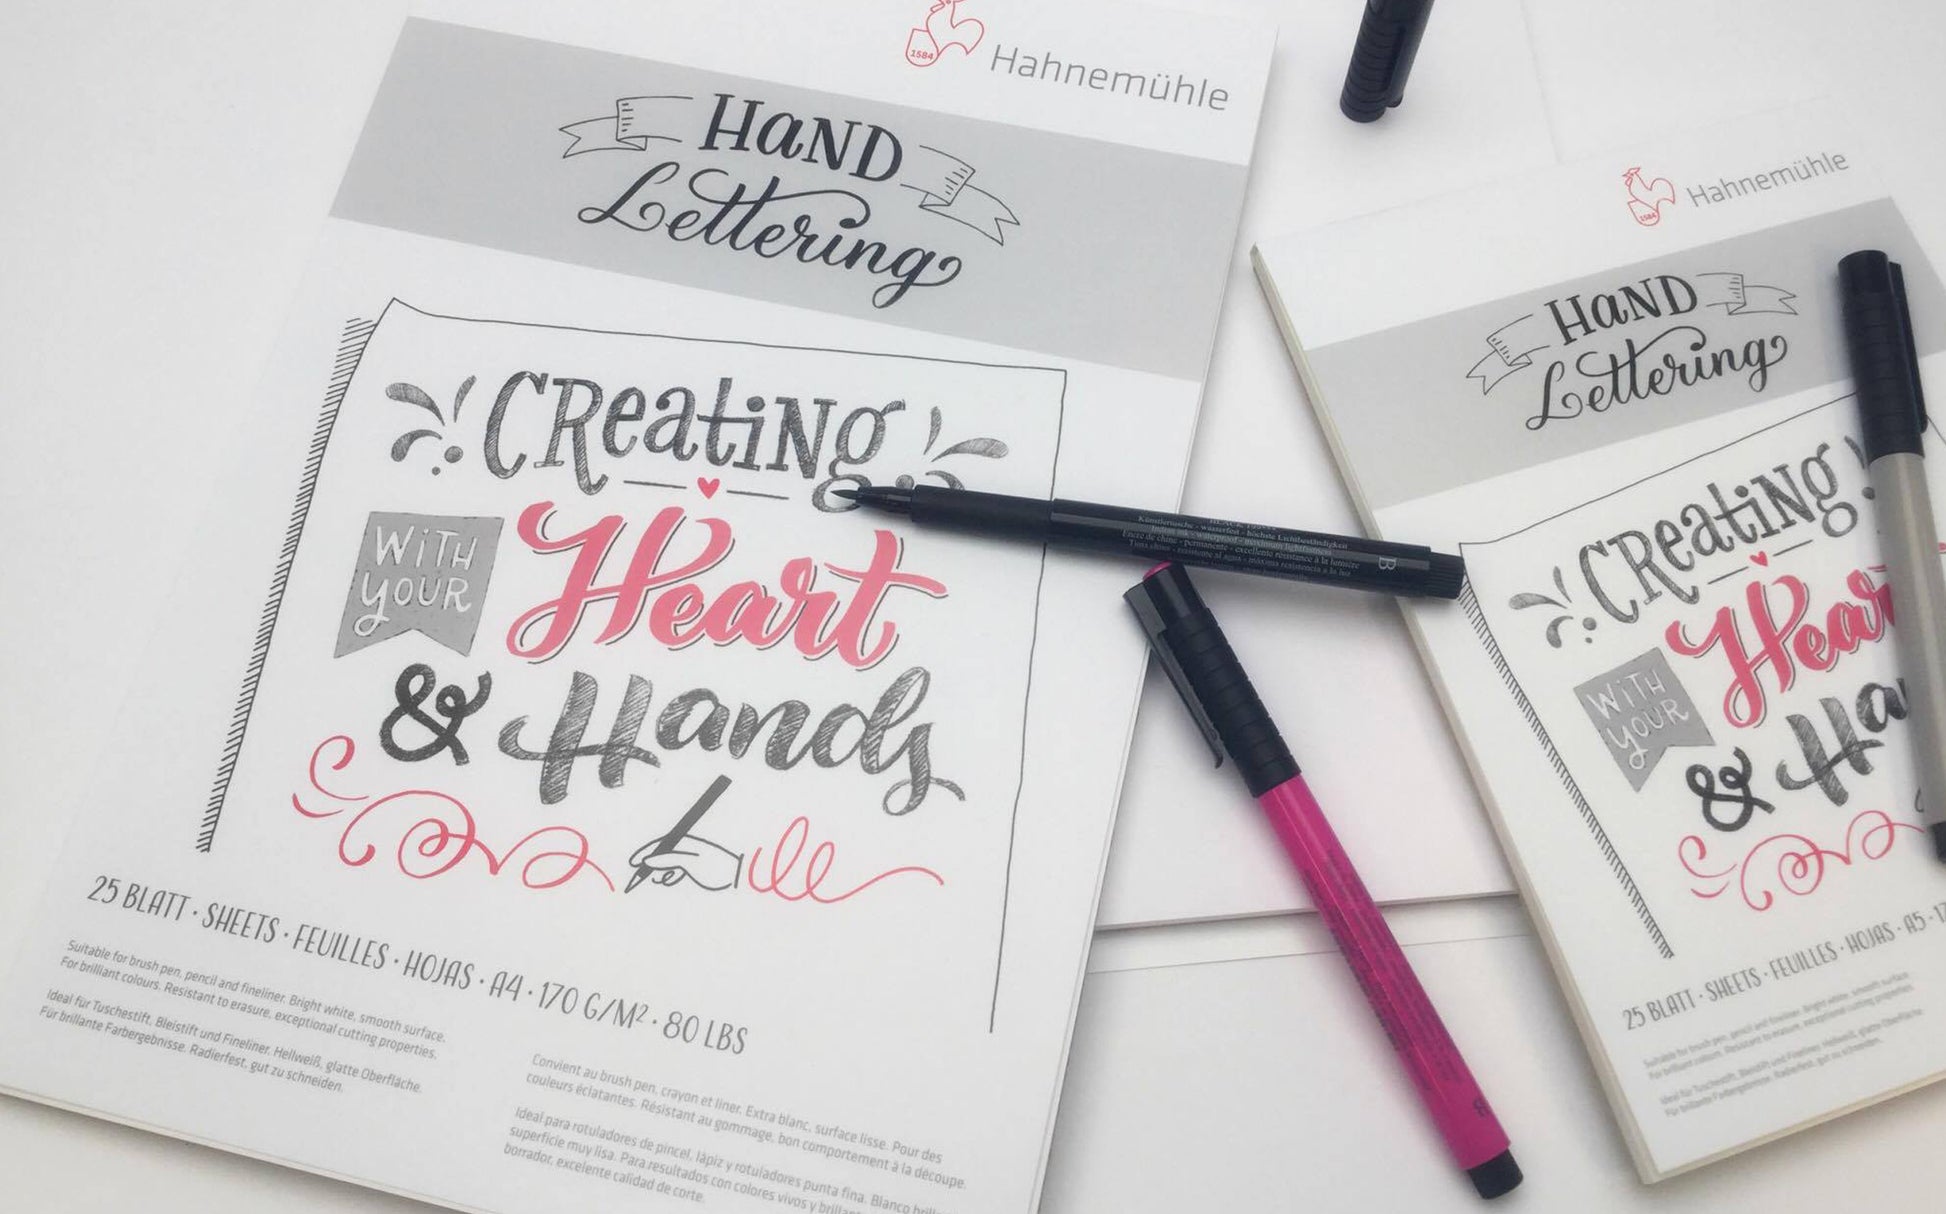 1584
Hahnemühle
HaND
Lettering
CReatiNg
WiTH
YOUR
Heart
& Hands
25 BLATT · SHEETS · FEUILLES · HOJAS · A4 · 170 G/M² · 80 LBS
Suitable for brush pen, pencil and fineliner. Bright white, smooth surface.
For brilliant colours. Resistant to erasure, exceptional cutting properties.
Ideal für Tuschestift, Bleistift und Fineliner. Hellweiß, glatte Oberfläche.
Für brillante Farbergebnisse. Radierfest, gut zu schneiden.
Convient au brush pen, crayon et liner. Extra blanc, surface lisse. Pour des
couleurs éclatantes. Résistant au gommage, bon comportement à la découpe.
Ideal para rotuladores de pincel, lápiz y rotuladores punta fina. Blanco
superficie muy lisa. Para resultados con colores vivos y
borrador, excelente calidad de corte.
Künstlertusche - wasserfest - höchste Lichtbeständigkeit
Indian ink - waterproof - maximum lightfastness
Encre de chine - permanente - excellente résistance à la lumière
Tinta china - resistente al agua - máxima resistencia a la luz
B
B
1584
Hahnemühle
HaND
Lettering
CReatiNg
WiTH
YOUR
Hear
& Ha
25 BLATT · SHEETS · FEUILLES · HOJAS · A5 · 17
Suitable for brush pen, pencil and fineliner. Bright white, smooth surface.
For brilliant colours. Resistant to erasure, exceptional cutting properties.
Ideal für Tuschestift, Bleistift und Fineliner. Hellweiß, glatte Oberfläche.
Für brillante Farbergebnisse. Radierfest, gut zu schneiden.